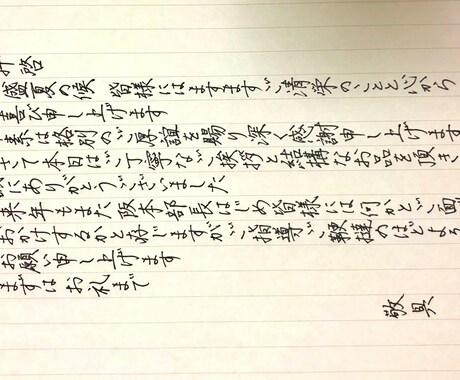 啓
盛夏の候 皆様にはますますご清栄のことと心から
喜び申し上げます
来は格別のご厚誼を賜り深く感謝申し上げます
さて本日はご丁寧なご挨拶と結構なお品を頂き
にありがとうございました
来年もまた阪本部長はじめ皆様には何かとご面
おかけするかと存じますがご指導ご鞭撻のほどよろ
お願い申し上げます
まずは お礼まで
敬具